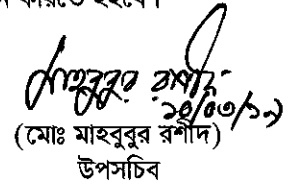 করিতে হইবে।
মাহবুবুর রশীদ
(মোঃ মাহবুবুর রশীদ)
উপসচিব